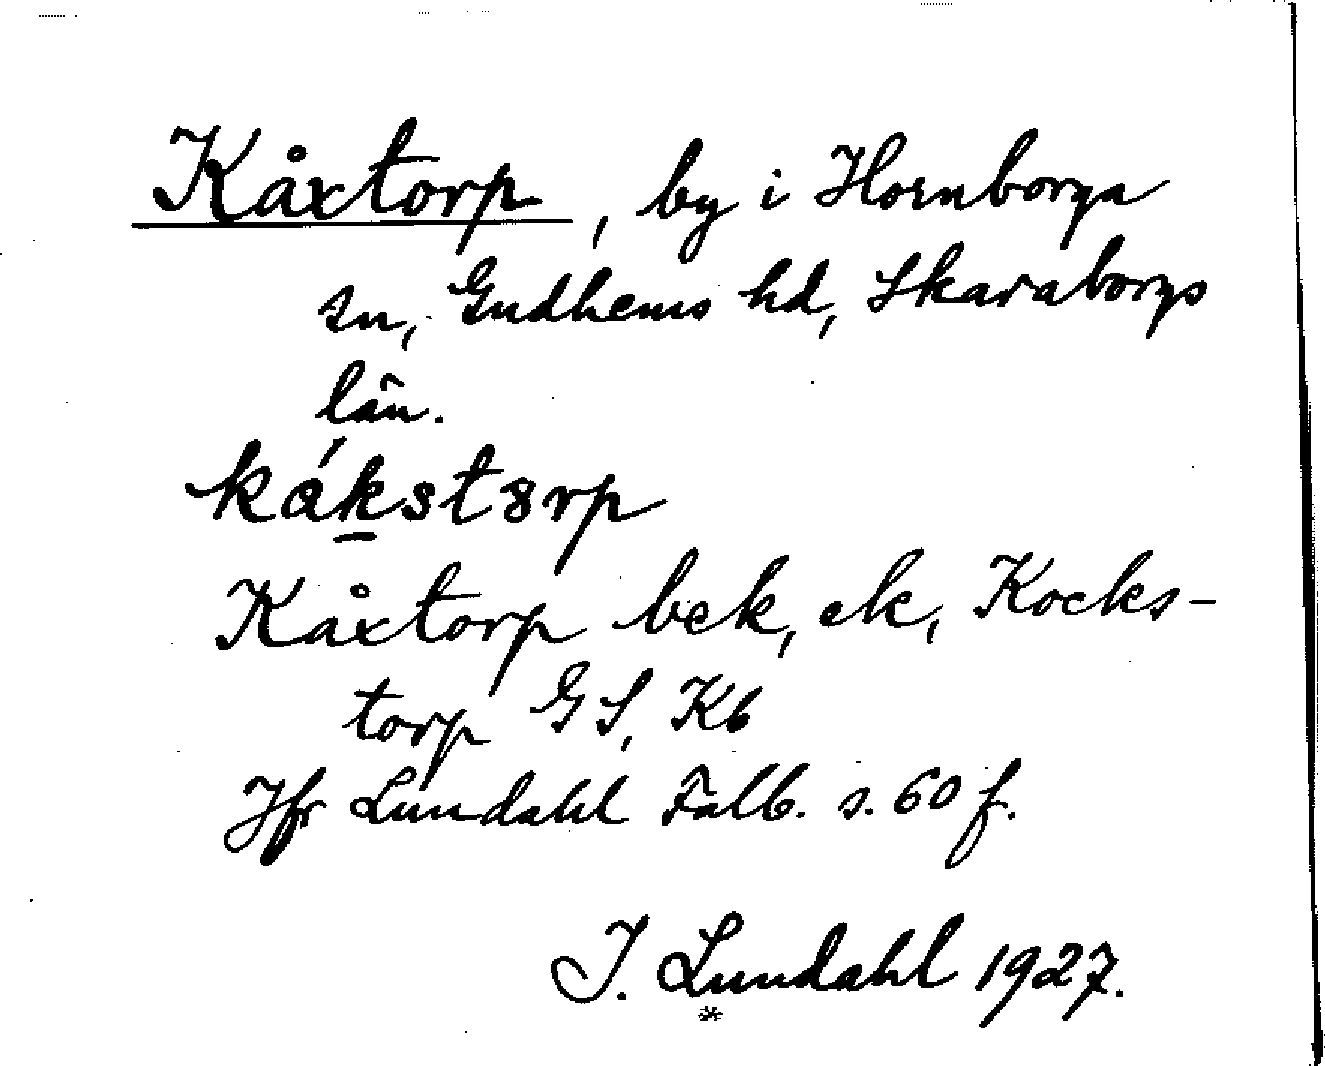 Kåxtorp, by i Hornborga
sn, Gudhems hd, Skaraborgs
län.
kákstȣrp
Kåxtorp bek, ek, Kocks-
torp GS, Kb
Jfr Lundahl Falb. s. 60 f.
I. Lundahl 1927.
*